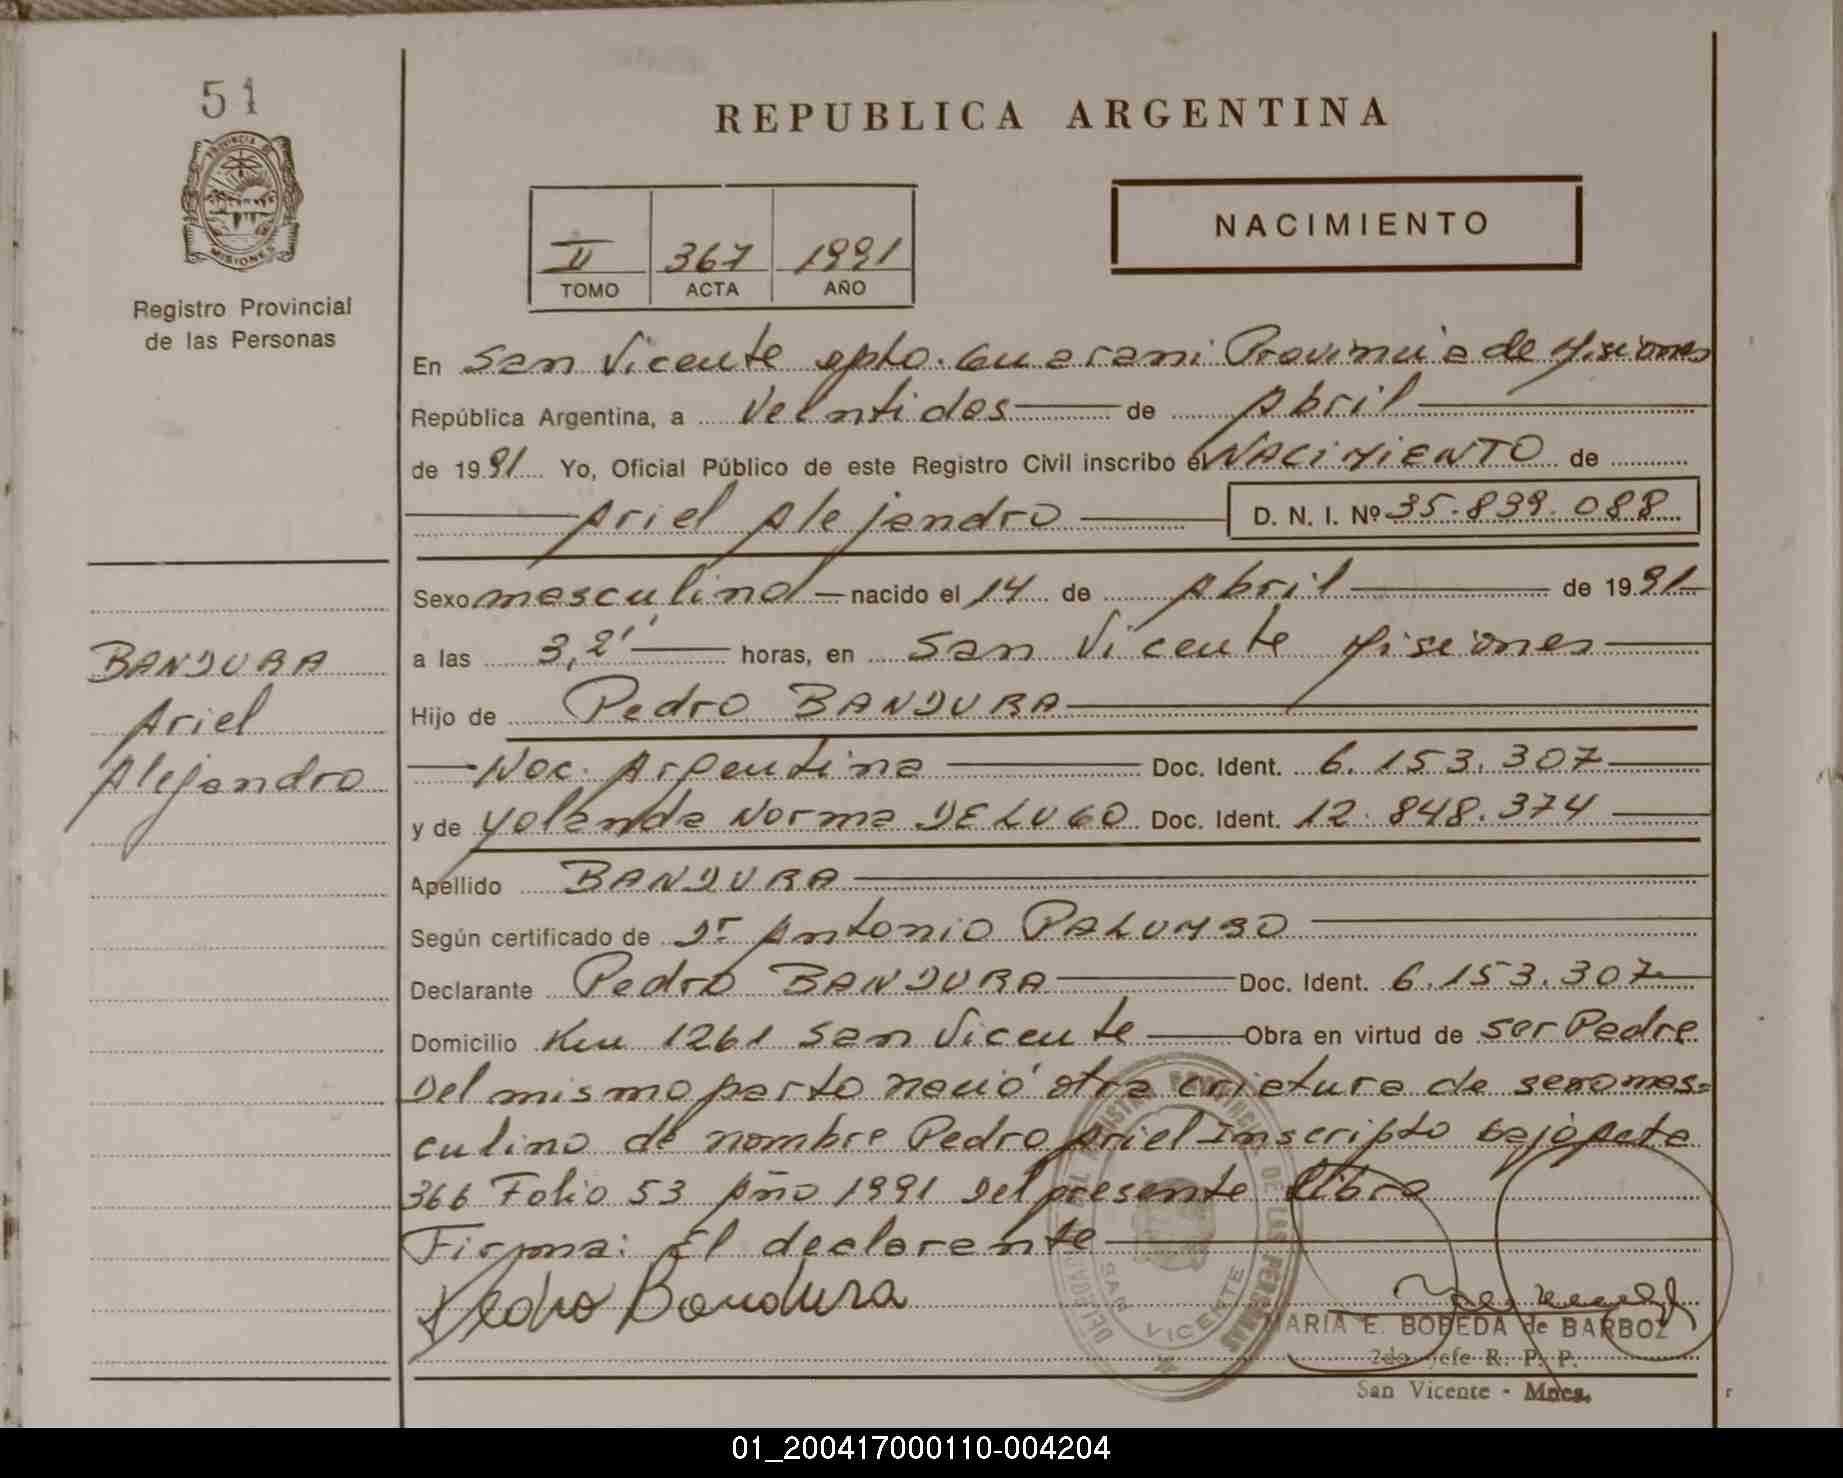 51
REPUBLICA ARGENTINA
PROVINCIA DE
MISIONES
Registro Provincial
de las Personas
II 367 1991
TOMO ACTA AÑO
NACIMIENTO
En San Vicente Dpto. Guarani Provincia de Misiones
República Argentina, a Veintidos de Abril
de 1991 Yo, Oficial Público de este Registro Civil inscribo el NACIMIENTO de
Ariel Alejandro D. N. I. Nº 35.839.088
Sexo masculino nacido el 14 de Abril de 1991
a las 3,2' horas, en San Vicente Misiones
BANDURA
Ariel
Alejandro
Hijo de Pedro BANDURA
Nac. Argentina Doc. Ident. 6.153.307
y de Yolanda Norma DE LUGO Doc. Ident. 12.848.374
Apellido BANDURA
Según certificado de Dr Antonio PALUMBO
Declarante Pedro BANDURA Doc. Ident. 6.153.307
Domicilio Km 1261 San Vicente Obra en virtud de ser Padre
Del mismo parto nació otra criatura de sexo mas=
culino de nombre Pedro Ariel Inscripto bajo Acta
366 Folio 53 Año 1991 Del presente libro
Firma: El declarante
Pedro Bandura
SAN VICENTE
MARIA E. BOBEDA de BARBOZ
2do Jefe R. P. P.
San Vicente - Mnes.
01_200417000110-004204